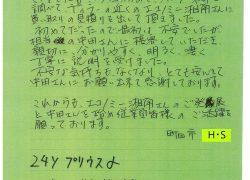 調べて
近くのエコノミー湘南さんに
買い取りの見積りを出して頂きました。
初めてだったので最初は不安でしたが
担当の中田さんに接客していただき
親切に、分かりやすく、明るく、凄く
丁寧に説明を受けました。
不安な気持ちもなくなり、とても安心して
中田さんにお願い出来て感謝しております。
これからも、エコノミー湘南さんのご発展
と中田さんを始め従業員皆様のご活躍を
願っております。
町田市 H・S
24Y プリウスα